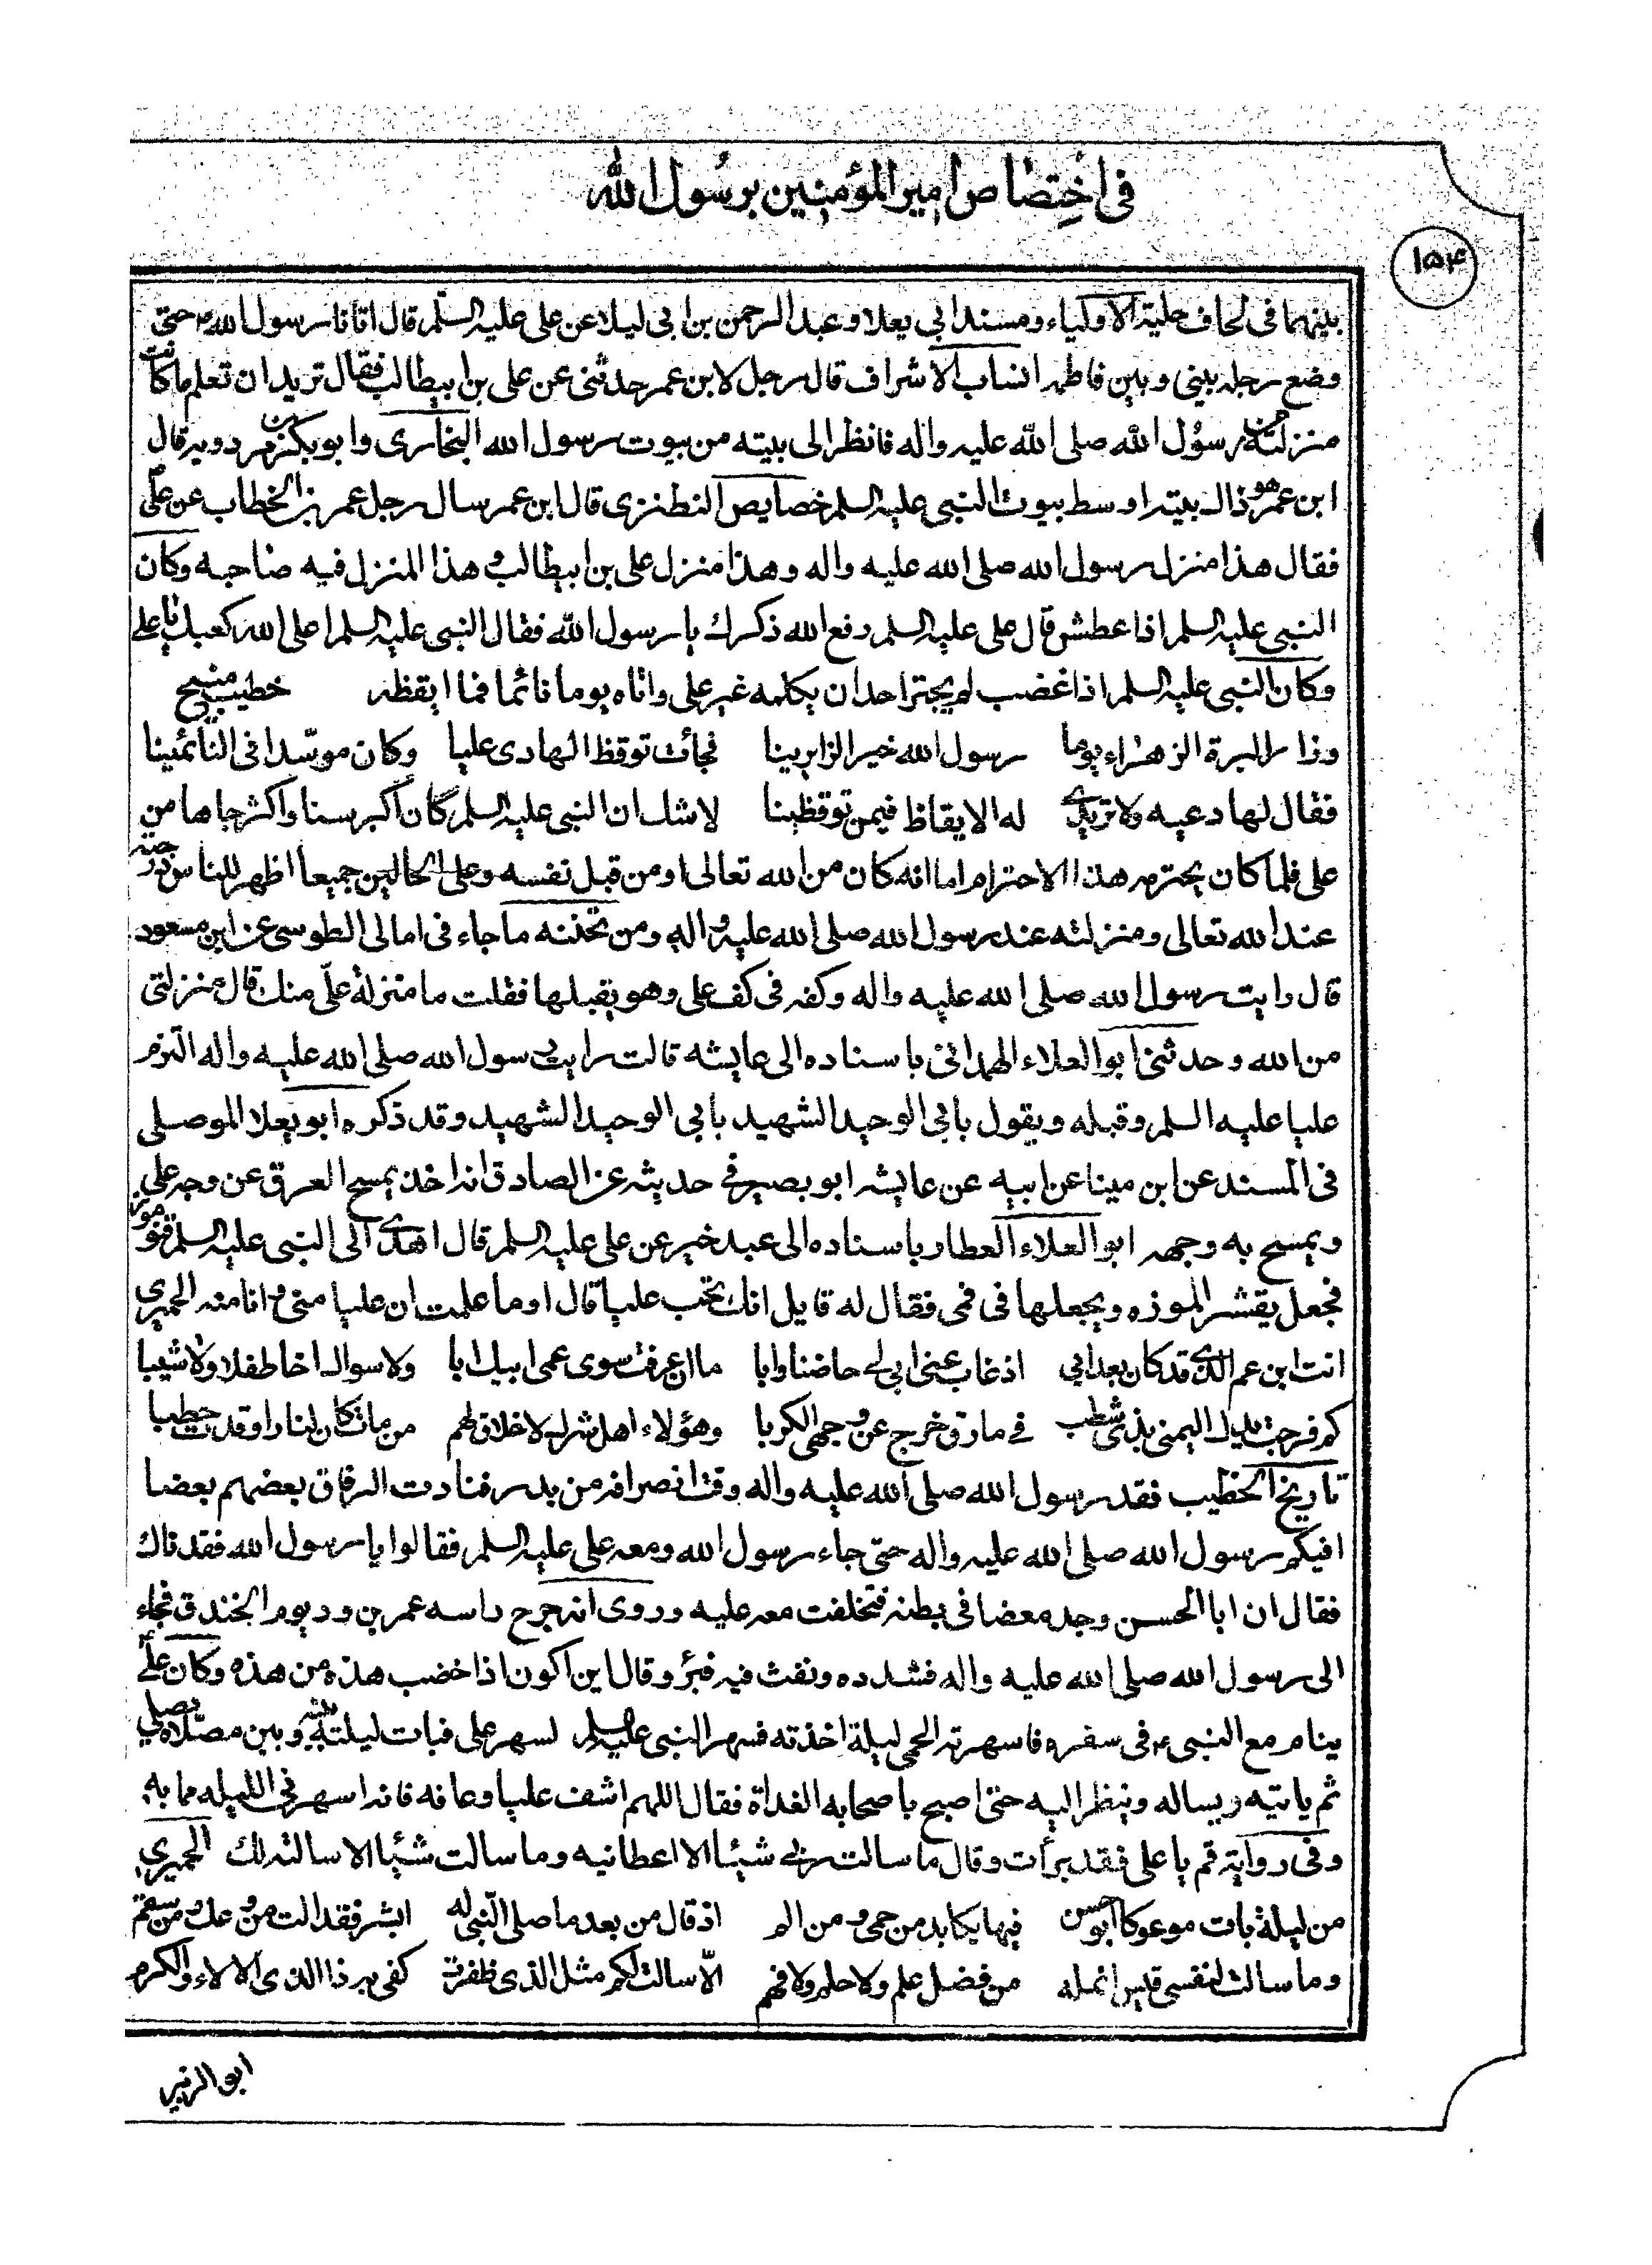 فى اختصاص امير المؤمنين برسول الله
١٥۴
بينهما فى لحاف حلية الاولياء ومسند ابي يعلا وعبد الرحمن بن ابى ليلا عن على عليه السلم قال اتانا رسول الله ص حتى
وضع رجله بينى وبين فاطمه انساب الاشراف قال رجل لابن عمر حدثنى عن على بن ابيطالب فقال تريد ان تعلم ما كانت
منزلته من رسول الله صلى الله عليه واله فانظر الى بيته من بيوت رسول الله البخارى وابو بكر بن مردويه قال
ابن عمر هو ذاك بيته اوسط بيوت النبى عليه السلم خصايص النطنزى قال ابن عمر سال رجل عمر بن الخطاب عن على
فقال هذا منزل رسول الله صلى الله عليه واله وهذا منزل على بن ابيطالب وهذا المنزل فيه صاحبه وكان
النبى عليه السلم اذا عطش قال على عليه السلم رفع الله ذكرك يا رسول الله فقال النبى عليه السلم اعلى الله كعبك يا على
وكان النبى عليه السلم اذا غضب لم يجتر احد ان يكلمه غير على واتاه يوما نائما فما ايقظه خطيب منبج
وزار البرة الزهراء يوما رسول الله خير الزايرينا فجائت توقظ الهادى عليا وكان موسّدا فى النائمينا
فقال لها دعيه ولا تريدى له الايقاظ فيمن توقظينا لا شك ان النبى عليه السلم كان اكبر سنا واكثر جاها من
على فلما كان يحترمه هذا الاحترام اما انه كان من الله تعالى او من قبل نفسه وعلى الحالين جميعا اظهر للناس درجته
عند الله تعالى ومنزلته عند رسول الله صلى الله عليه واله ومن تحننه ما جاء فى امالى الطوسى عن ابن مسعود
قال رايت رسول الله صلى الله عليه واله وكفه فى كف على وهو يقبلها فقلت ما منزلة علىّ منك قال منزلتى
من الله وحدثنى ابو العلاء الهمدانى باسناده الى عايشه قالت رايت رسول الله صلى الله عليه واله التزم
عليا عليه السلم وقبله ويقول بابى الوحيد الشهيد بابى الوحيد الشهيد وقد ذكره ابو يعلا الموصلى
فى المسند عن ابن مينا عن ابيه عن عايشه ابو بصير فى حديثه عن الصادق انه اخذ يمسح العرق عن وجه على
ويمسح به وجهه ابو العلاء العطار باسناده الى عبد خير عن على عليه السلم قال اهدى الى النبى عليه السلم قنو موز
فجعل يقشر الموزه ويجعلها فى فمى فقال له قايل انك تحب عليا قال اوما علمت ان عليا منى وانا منه الحميرى
انت ابن عم الذى قد كان بعد ابى اذ غاب عنى ابى لى حاضنا وابا ما ان عرفت سوى عمى ابيك ابا ولا سواك اخا طفلا ولا شيبا
كم فرجت يدك اليمنى بذى شطب فى مارق خرج عن وجهى الكربا وهؤلاء اهل شرك لا خلاق لهم من مات كان لنار اوقدت حطبا
تاريخ الخطيب فقد رسول الله صلى الله عليه واله وقت انصرافه من بدر فنادت الرفاق بعضهم بعضا
افيكم رسول الله صلى الله عليه واله حتى جاء رسول الله ومعه على عليه السلم فقالوا يا رسول الله فقدناك
فقال ان ابا الحسن وجد مغصا فى بطنه فتخلفت معه عليه وروى انه جرح راسه عمر بن ود يوم الخندق فجاء
الى رسول الله صلى الله عليه واله فشده ونفث فيه فبرُ وقال اين اكون اذا خضب هذه من هذه وكان على
ينام مع النبى ص فى سفره فاسهرته الحمى ليلة اخذته فسهر النبى عليه السلم لسهر على فبات ليلته بينه وبين مصلاه يصلى
ثم ياتيه ويساله وينظر اليه حتى اصبح باصحابه الغداة فقال اللهم اشف عليا وعافه فانه اسهرنى الليله مما به
وفى رواية قم يا على فقد برأت وقال ما سالت ربى شيئا الا اعطانيه وما سالت شيئا الا سالته لك الحميرى
من ليلة بات موعوكا ابو حسن فيها يكابد من حمى ومن الم اذ قال من بعد ما صلى النّبى له ابشر فقد الت من وعك ومن سقم
وما سالت لنفسى قيس انمله من فضل علم ولا حلم ولا فهم الّا سالت لكم مثل الذى ظفرت كفى به ذا الذى الالاء والكرم
ابو الزبير